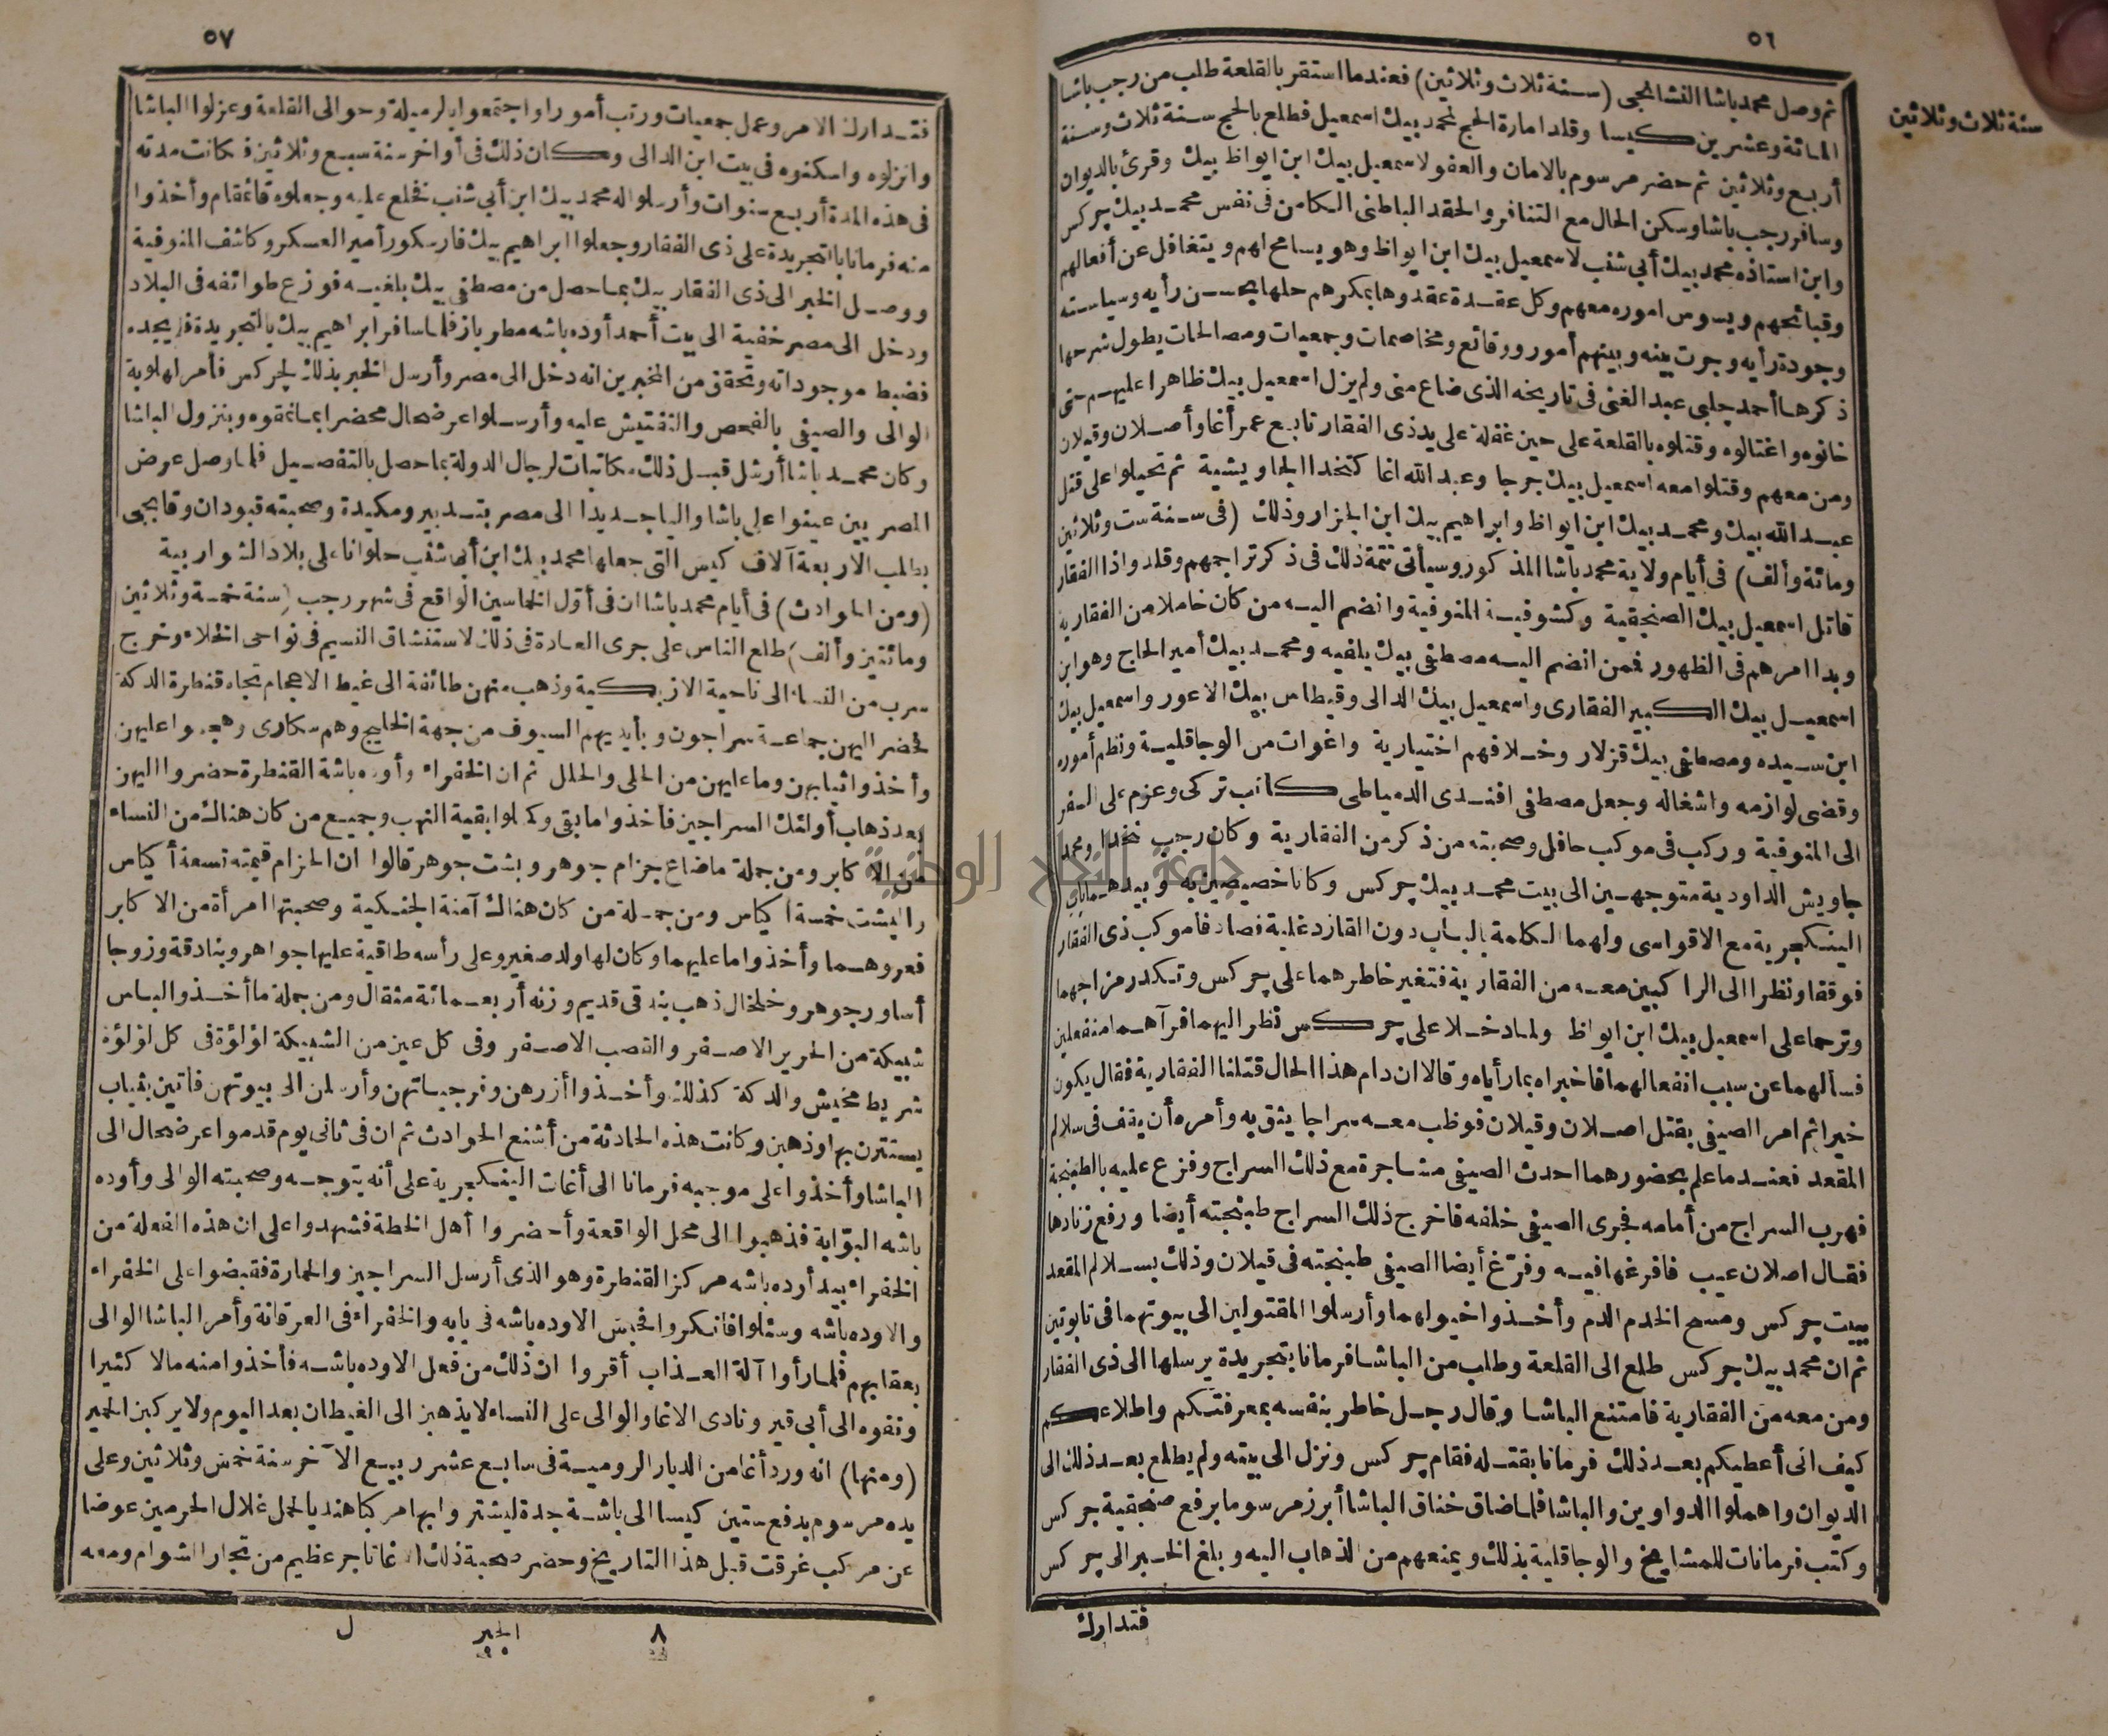 ٥٦
سنة ثلاث وثلاثين
ثم وصل محمد باشا النشانجي (سنة ثلاث وثلاثين) فعندما استقر بالقلعة طلب من رجب باشا
المائة وعشرين كيسا وقلد امارة الحج لمحمد بيك اسمعيل فطلع بالحج سنة ثلاث وسنة
أربع وثلاثين ثم حضر مرسوم بالامان والعفو لاسمعيل بيك ابن ايواظ بيك وقرئ بالديوان
وسافر رجب باشا وسكن الحال مع التنافر والحقد الباطنى الكامن فى نفس محمد بيك چركس
وابن استاذه محمد بيك أبي شنب لاسمعيل بيك ابن ايواظ وهو يسامح لهم ويتغافل عن أفعالهم
وقبائحهم ويسوس اموره معهم وكل عقدة عقدوها بمكرهم حلها بحسن رأيه وسياسته
وجودة رأيه وجرت بينه وبينهم أمور ووقائع ومخاصمات وجمعيات ومصالحات يطول شرحها
ذكرها أحمد چلبي عبد الغنى فى تاريخه الذى ضاع منى ولم يزل اسمعيل بيك ظاهرا عليهم حتى
خانوه واغتالوه وقتلوه بالقلعة على حين غفلة على يد ذى الفقار تابع عمر أغا وأصلان وقيلان
ومن معهم وقتلوا معه اسمعيل بيك جرجا وعبد الله اغا كتخدا الجاويشية ثم تحيلوا على قتل
عبد الله بيك ومحمد بيك ابن ايواظ وابراهيم بيك ابن الجزار وذلك (فى سنة ست وثلاثين
ومائة وألف) فى أيام ولاية محمد باشا المذكور وسيأتى تتمة ذلك فى ذكر تراجمهم وقلدوا ذا الفقار
قاتل اسمعيل بيك الصنجقية وكشوفية المنوفية وانضم اليه من كان خاملا من الفقارية
وبدا امرهم فى الظهور فمن انضم اليه مصطفى بيك بلفيه ومحمد بيك أمير الحاج وهو ابن
اسمعيل بيك الكبير الفقارى واسمعيل بيك الدالى وقيطاس بيك الاعور واسمعيل بيك
ابن سيده ومصطفى بيك قزلار وخلافهم اختيارية واغوات من الوجاقلية ونظم أموره
وقضى لوازمه واشغاله وجعل مصطفى افندى الدمياطى كاتب تركى وعزم على السفر
الى المنوفية وركب فى موكب حافل وصحبته من ذكر من الفقارية وكان رجب كتخدا ومحمد
جاويش الداودية متوجهين الى بيت محمد بيك چركس وكانا خصيصين به وبيدهما باب
الينكجرية مع الاقواسى ولهما الكلمة بالباب دون القازدغلية فصادفا موكب ذى الفقار
فوقفا ونظرا الى الراكبين معه من الفقارية فتغير خاطرهما على چركس وتكدر مزاجهما
وترحما على اسمعيل بيك ابن ايواظ ولما دخلا على چركس نظر اليهما فرآهما منفعلين
فسألهما عن سبب انفعالهما فاخبراه بما رأياه وقالا ان دام هذا الحال قتلنا الفقارية فقال يكون
خيرا ثم امر الصيفى بقتل اصلان وقيلان فوظب معه سراجا يثق به وأمره أن يقف فى سلالم
المقعد فعندما علم بحضورهما احدث الصيفى مشاجرة مع ذلك السراج وفزع عليه بالطبنجة
فهرب السراج من أمامه فجرى الصيفى خلفه فاخرج ذلك السراج طبنجته أيضا ورفع زنادها
فقال اصلان عيب فافرغها فيه وفرّغ أيضا الصيفى طبنجته فى قيلان وذلك بسلالم المقعد
ببيت چركس ومسح الخدم الدم وأخذوا خيولهما وأرسلوا المقتولين الى بيوتهما فى تابوتين
ثم ان محمد بيك چركس طلع الى القلعة وطلب من الباشا فرمانا بتجريدة يرسلها الى ذى الفقار
ومن معه من الفقارية فامتنع الباشا وقال رجل خاطر بنفسه بمعرفتكم واطلاعكم
كيف انى أعطيكم بعد ذلك فرمانا بقتله فقام چركس ونزل الى بيته ولم يطلع بعد ذلك الى
الديوان واهملوا الدواوين والباشا فلما ضاق خناق الباشا أبرز مرسوما برفع صنجقية چركس
وكتب فرمانات للمشايخ والوجاقلية بذلك ويمنعهم من الذهاب اليه وبلغ الخبر الى چركس
فتدارك
٥٧
فتدارك الامر وعمل جمعيات ورتب أمورا واجتمعوا بالرميلة وحوالى القلعة وعزلوا الباشا
وانزلوه واسكنوه فى بيت ابن الدالى وكان ذلك فى أواخر سنة سبع وثلاثين فكانت مدته
فى هذه المدة أربع سنوات وأرسلوا له محمد بيك ابن أبي شنب فخلع عليه وجعلوه قائمقام وأخذوا
منه فرمانا بالتجريدة على ذى الفقار وجعلوا ابراهيم بيك فارسكور أمير العسكر وكاشف المنوفية
ووصل الخبر الى ذى الفقار بيك بما حصل من مصطفى بيك بلفيه فوزع طوائفه فى البلاد
ودخل الى مصر خفية الى بيت أحمد أوده باشه مطرباز فلما سافر ابراهيم بيك بالتجريدة فلم يجده
فضبط موجوداته وتحقق من المخبرين انه دخل الى مصر وأرسل الخبر بذلك لچركس فأمر لهلوبة
الوالى والصيفى بالفحص والتفتيش عليه وأرسلوا عرضحال محضرا بما نمقوه وبنزول الباشا
وكان محمد باشا أرسل قبل ذلك مكاتبات لرجال الدولة بما حصل بالتفصيل فلما وصل عرض
المصريين عينوا على باشا واليا جديدا الى مصر بتدبير ومكيدة وصحبته قبودان وقابجى
بطلب الاربعة آلاف كيس التى جعلها محمد بيك ابن أبي شنب حلوانا على بلاد الشواربية
(ومن الحوادث) فى أيام محمد باشا ان فى أوّل الخماسين الواقع فى شهر رجب (سنة خمسة وثلاثين
ومائتين وألف) طلع الناس على جرى العادة فى ذلك لاستنشاق النسيم فى نواحى الخلاء وخرج
سرب من النساء الى ناحية الازبكية وذهب منهن طائفة الى غيط الاعجام تجاه قنطرة الدكة
فحضر اليهن جماعة سراجون وبأيديهم السيوف من جهة الخليج وهم سكارى وهجموا عليهن
وأخذوا ثيابهن وما عليهن من الحلى والحلل ثم ان الخفراء وأوده باشة القنطرة حضروا اليهن
بعد ذهاب أولئك السراجين فاخذوا ما بقى وكملوا بقية النهب وجميع من كان هناك من النساء
من الاكابر ومن جملة ما ضاع حزام جوهر وبشت جوهر قالوا ان الحزام قيمته تسعة أكياس
والبشت خمسة أكياس ومن جملة من كان هناك آمنة الجنكية وصحبتها امرأة من الاكابر
فعروهما وأخذوا ما عليهما وكان لها ولد صغير وعلى رأسه طاقية عليها جواهر وبنادقة وزوجا
أساور جوهر وخلخال ذهب بندقى قديم وزنه أربعمائة مثقال ومن جملة ما أخذوا لباس
شبيكة من الحرير الاصفر والقصب الاصفر وفى كل عين من الشبيكة لؤلؤة فى كل لؤلؤة
شريط مخيش والدكة كذلك وأخذوا أزرهن وفرجياتهن وأرسلن الى بيوتهن فاتين بثياب
يستترن بها وذهبن وكانت هذه الحادثة من أشنع الحوادث ثم ان فى ثانى يوم قدموا عرضحال الى
الباشا وأخذوا على موجبه فرمانا الى أغات الينكجرية على أنه يتوجه وصحبته الوالى وأوده
باشه البوّابة فذهبوا الى محل الواقعة وأحضروا أهل الخطة فشهدوا على ان هذه الفعلة من
الخفراء بيد أوده باشه مركز القنطرة وهو الذى أرسل السراجين والحمارة فقبضوا على الخفراء
والاوده باشه وسئلوا فانكروا فحبس الاوده باشه فى بابه والخفراء فى العرقانة وأمر الباشا الوالى
بعقابهم فلما رأوا آلة العذاب أقروا ان ذلك من فعل الاوده باشه فأخذوا منه مالا كثيرا
ونفوه الى أبي قير ونادى الاغا والوالى على النساء لا يذهبن الى الغيطان بعد اليوم ولا يركبن الحمير
(ومنها) انه ورد أغا من الديار الرومية فى سابع عشر ربيع الآخر سنة خمس وثلاثين وعلى
يده مرسوم بدفع ستين كيسا الى باشة جدة ليشتروا بها مركبا هنديا لحمل غلال الحرمين عوضا
عن مركب غرقت قبل هذا التاريخ وحضر صحبة ذلك الاغا تاجر عظيم من تجار الشوام ومعه
٨ الجبر ل
جامعة النجاح الوطنية